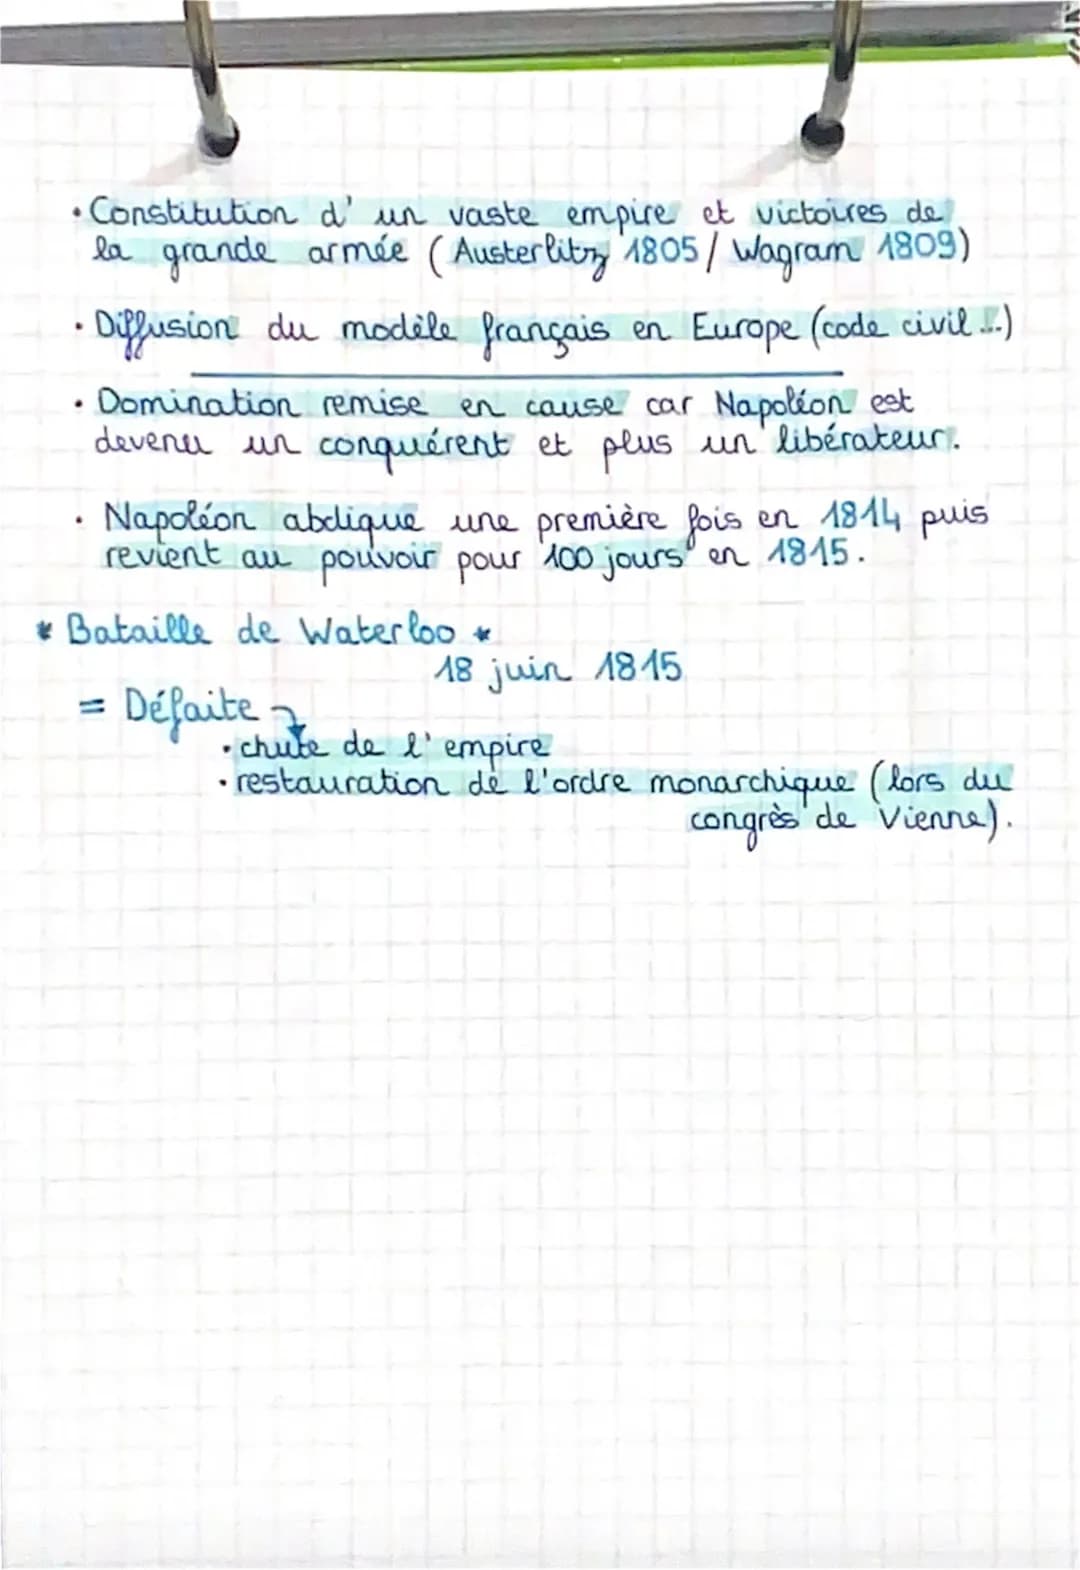 • Constitution d' un vaste empire et victoires de
la grande armée (Austerlitz 1805/ Wagram 1809)
• Diffusion du modèle français en Europe (code civil...)
• Domination remise en cause car Napoléon est
devenu un conquérent et plus un libérateur.
• Napoléon abdique une première fois en 1814 puis
revient au pouvoir pour 100 jours en 1815.
* Bataille de Waterloo *
18 juin 1815
= Défaite ↴
• chute de l'empire
• restauration de l'ordre monarchique (lors du
congrès de Vienne).